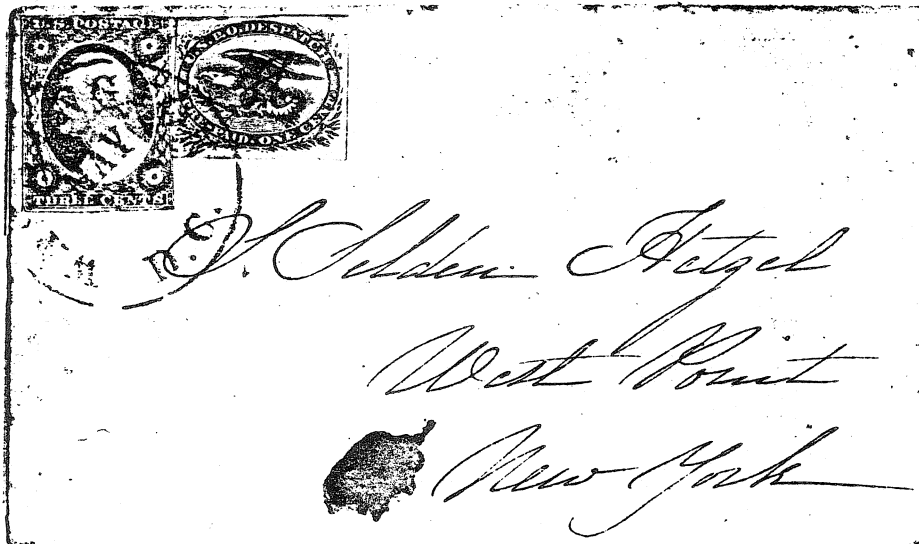 U.S. POSTAGE
THREE CENTS
U.S.P.O. DESPATCH
PRE-PAID ONE CENT
D.C.
S. Selden Hetzel
West Point
New York